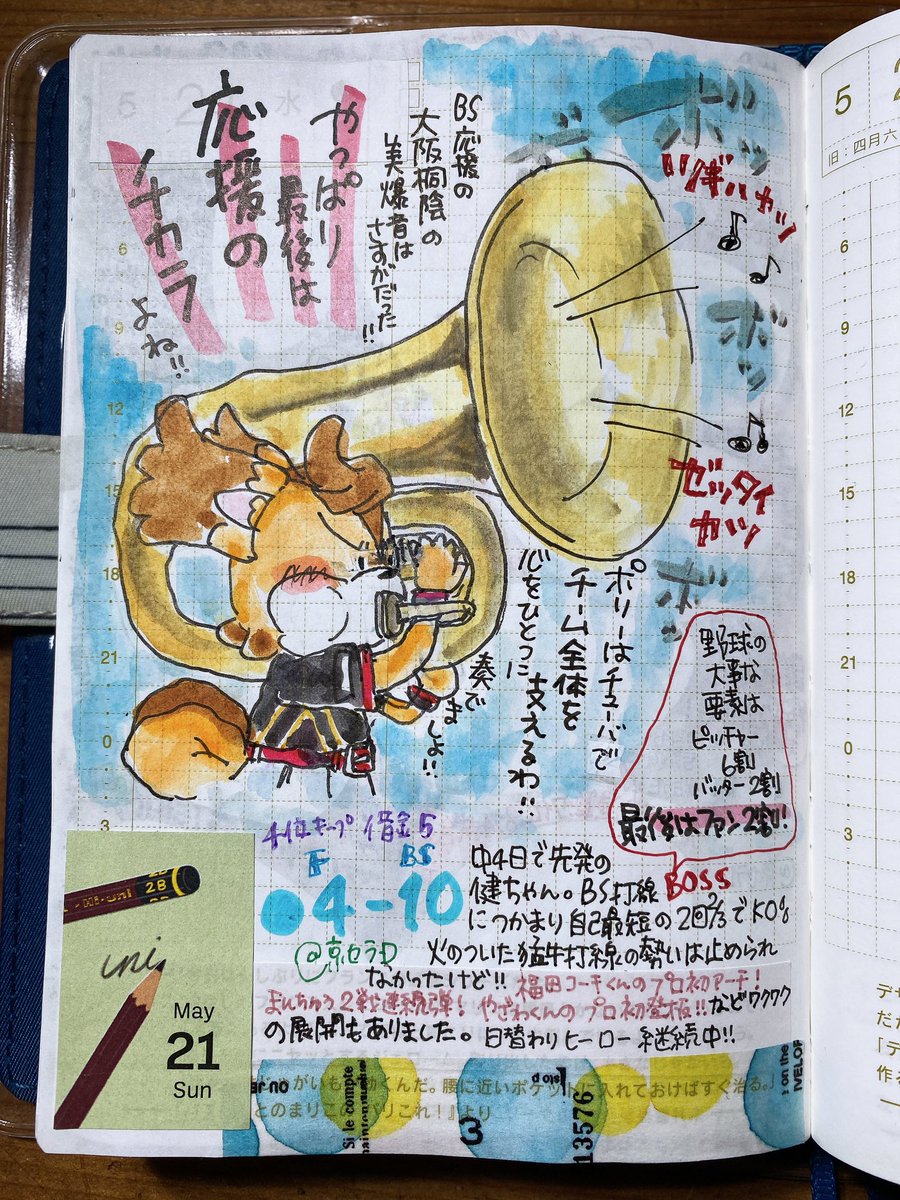 やっぱり
最後は
応援の
チカラ
よね!!
BS応援の
大阪桐蔭の
美爆音は
さすがだった!!
ボッ
ボッ
ボッ
ゼッタイ
カツ
ポリーはチューバで
チーム全体を
支えるわ!!
心をひとつに
奏でましょ!!
野球の
大事な
要素は
ピッチャー
6割
バッター2割
最後はファン2割!
BOSS
4位キープ 借金5
F BS
●4-10
@京セラD
中4日で先発の
健ちゃん。BS打線
につかまり自己最短の2回2/3でKO
火のついた猛牛打線の勢いは止められ
なかったけど!! 福田コーキくんのプロ初アーチ!
まんちゅう2戦連続弾! やざわくんのプロ初登板!!などワクワク
の展開もありました。日替わりヒーロー継続中!!
Hi-uni
2B
uni
May
21
Sun
5
水
6
9
12
15
18
21
0
3
くんだ。腰に近いポケットに入れておけばすぐ治る。」
より
Si le compte
13576
3
on the
5
旧:四月六
6
9
12
15
18
21
0
3
デサ
だか
「デ
作る